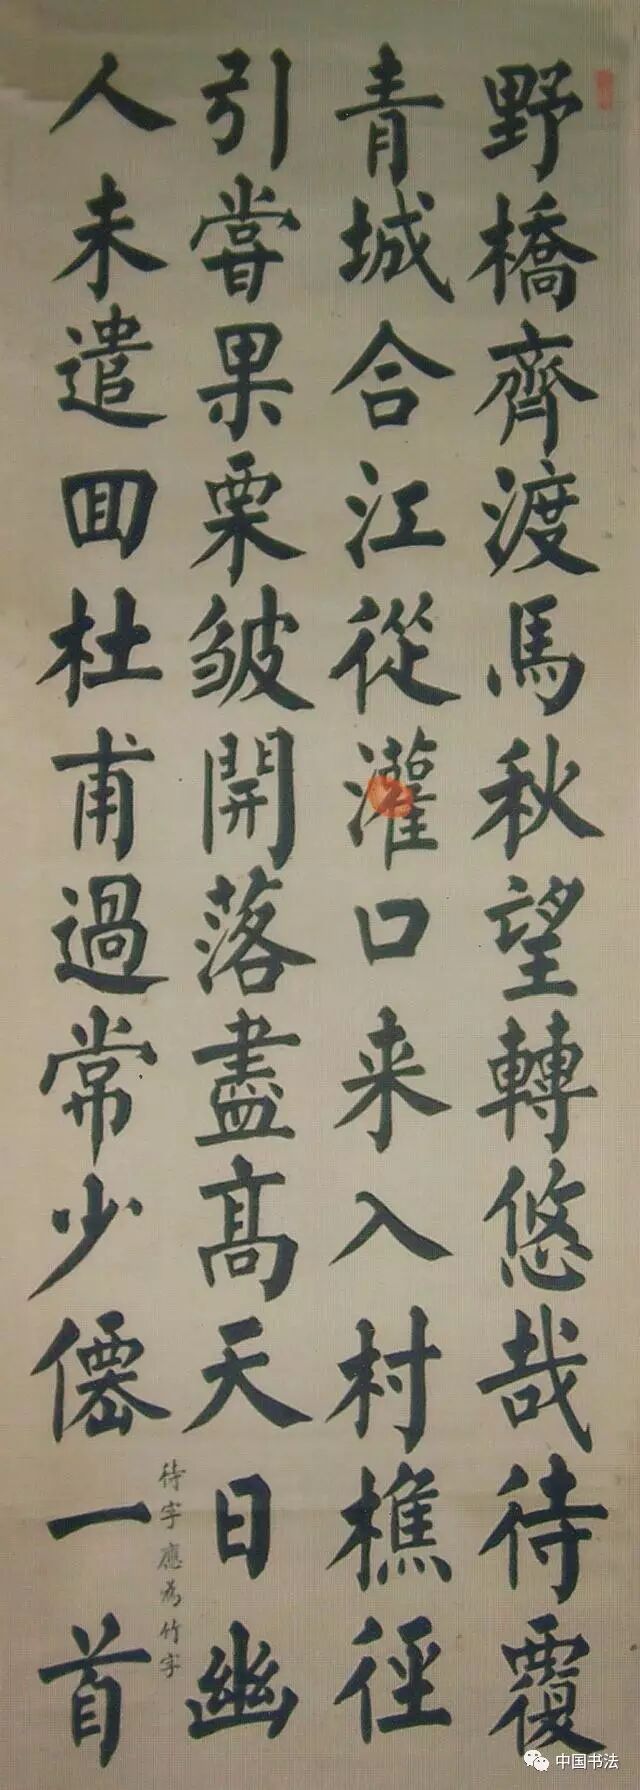 野橋齊渡馬秋望轉悠哉待覆
青城合江從灌口来入村樵徑
引嘗果栗皱開落盡高天日幽
人未遣回杜甫過常少僊一首
待字應為竹字
中国书法